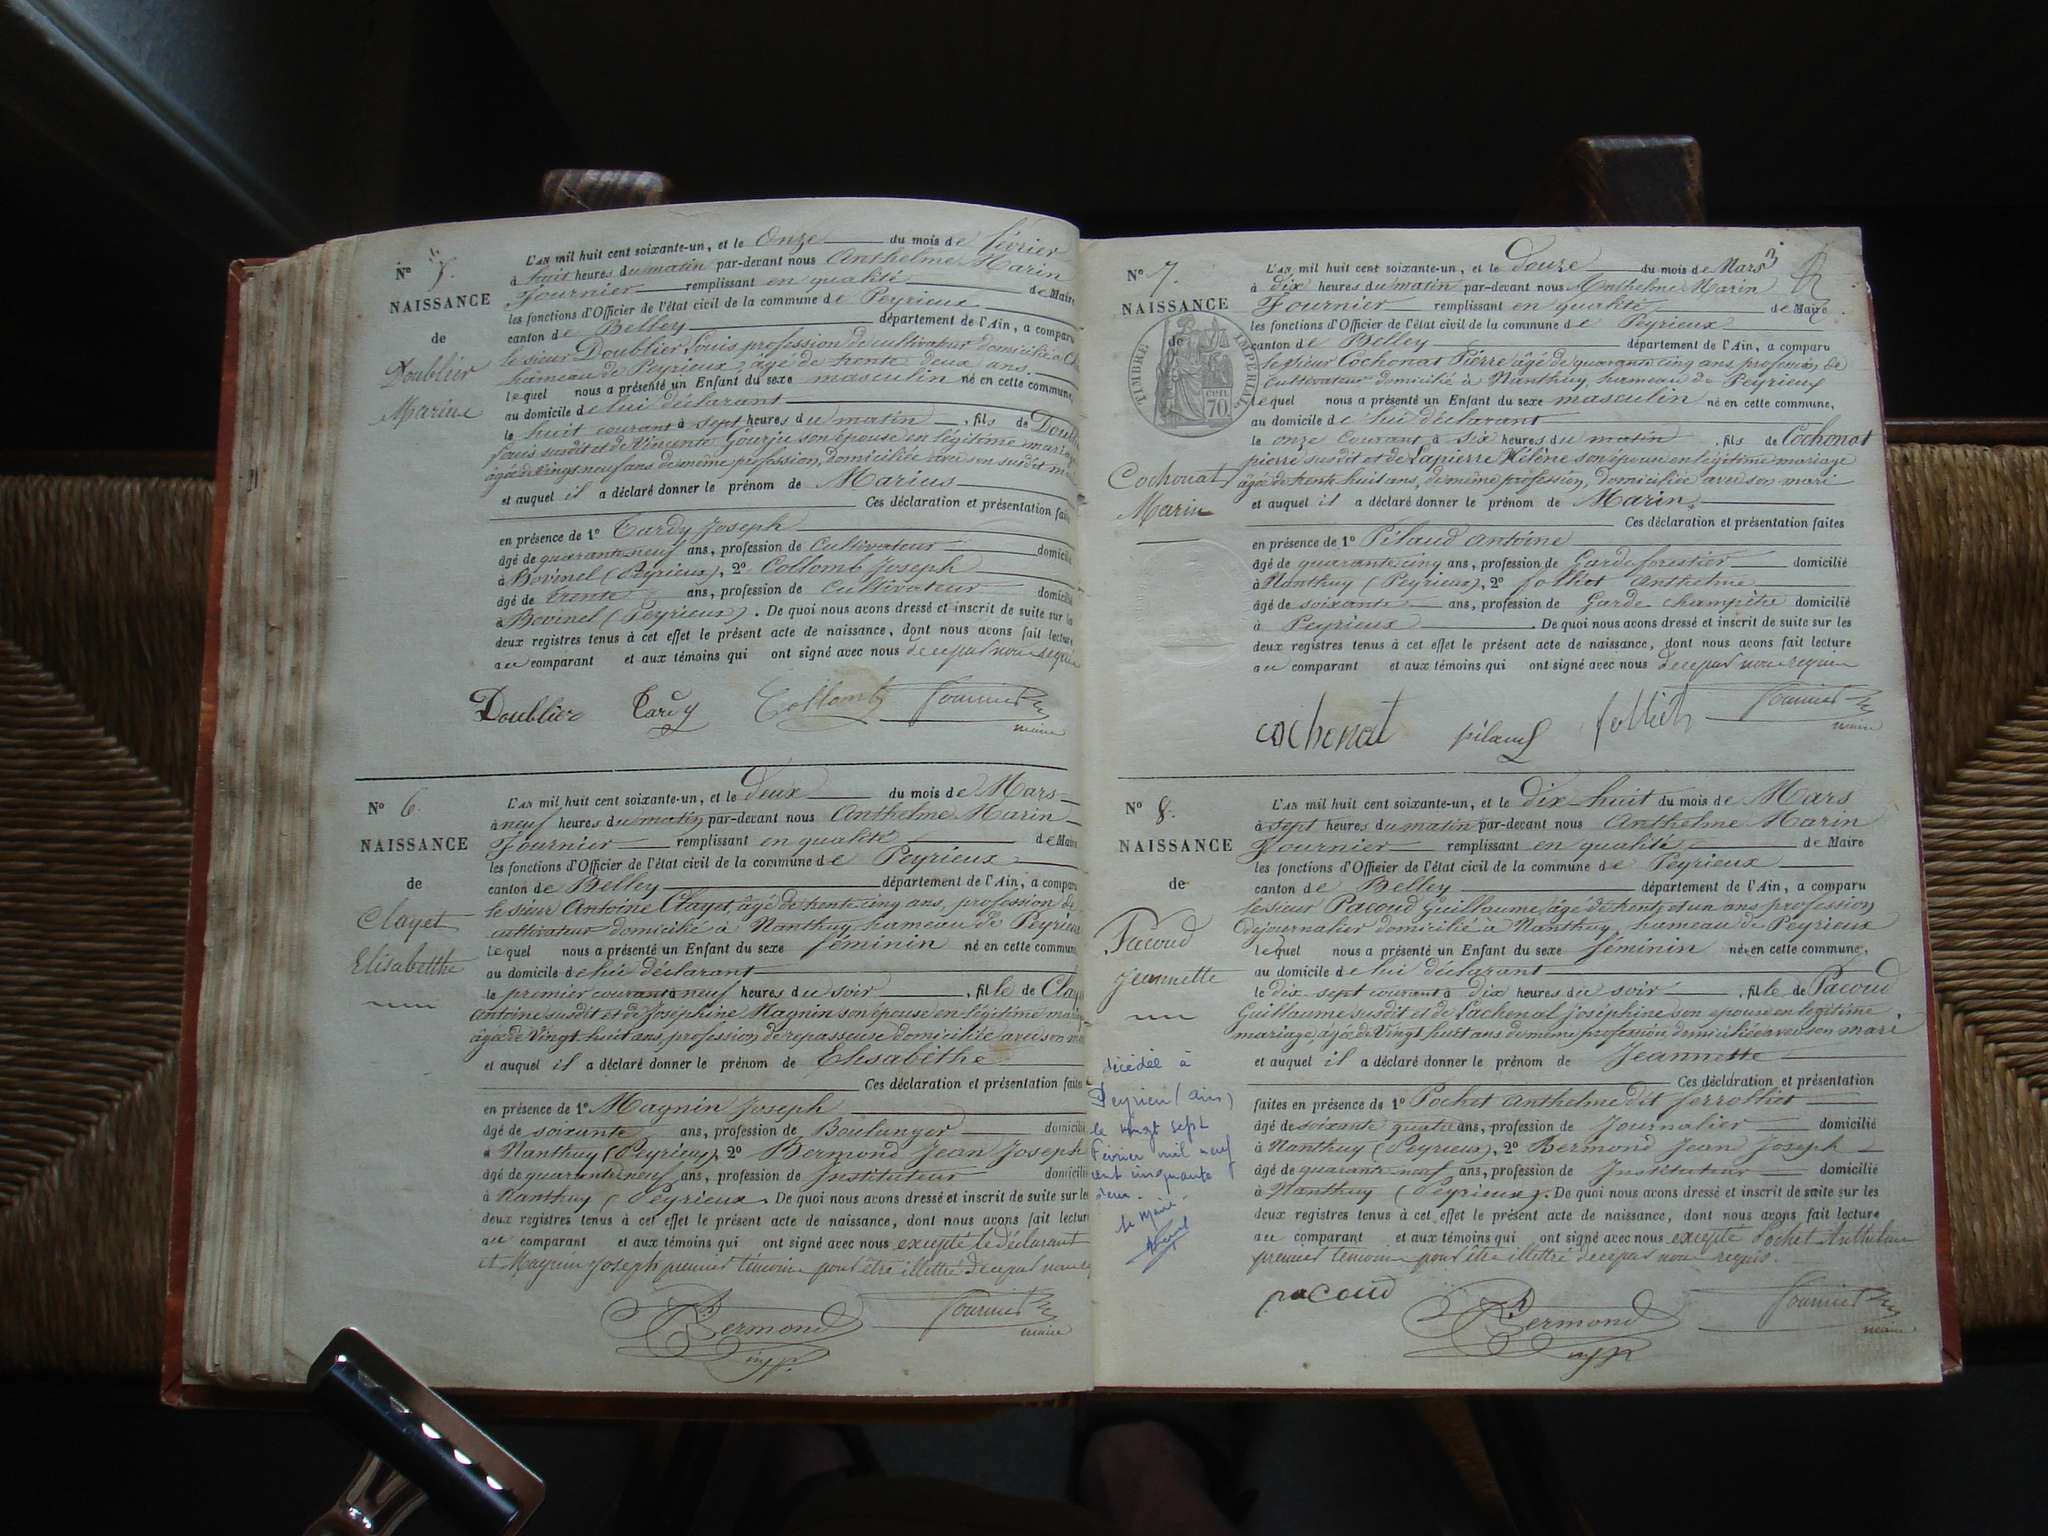 N° 5.
NAISSANCE
de
Doublier
Marius
L'AN mil huit cent soixante-un, et le Onze du mois de février
à huit heures du matin par-devant nous Anthelme Marin
Fournier remplissant en qualité de Maire
les fonctions d'Officier de l'état civil de la commune de Peyrieux
canton de Belley département de l'Ain, a comparu
le sieur Doublier Louis profession de cultivateur domicilié à
hameau de Peyrieux, âgé de trente deux ans.
lequel nous a présenté un Enfant du sexe masculin né en cette commune,
au domicile de lui déclarant
le huit courant à sept heures du matin, fils de Doubli
Louis susdit et de Vincente Gourju son épouse en légitime mariage
âgée de Vingt neuf ans de même profession, domiciliée avec son susdit
et auquel il a déclaré donner le prénom de Marius
Ces déclaration et présentation faites
en présence de 1° Tardy Joseph
âgé de quarante neuf ans, profession de Cultivateur domicilié
à Bovinel (Peyrieux), 2° Collomb Joseph
âgé de trente ans, profession de cultivateur domicilié
à Bovinel (Peyrieux). De quoi nous avons dressé et inscrit de suite sur les
deux registres tenus à cet effet le présent acte de naissance, dont nous avons fait lecture
au comparant et aux témoins qui ont signé avec nous de ce par nous requis
Doublier Tardy Collomb Fournier
maire
N° 6.
NAISSANCE
de
Clayet
Elisabethe
L'AN mil huit cent soixante-un, et le deux du mois de Mars
à neuf heures du matin par-devant nous Anthelme Marin
Fournier remplissant en qualité de Maire
les fonctions d'Officier de l'état civil de la commune de Peyrieux
canton de Belley département de l'Ain, a comparu
le sieur Antoine Clayet, âgé de trente cinq ans, profession de
cultivateur domicilié à Nanthuy, hameau de Peyrieux
lequel nous a présenté un Enfant du sexe féminin né en cette commune
au domicile de lui déclarant
le premier courant à neuf heures du soir, fille de Clay
Antoine susdit et de Joséphine Magnin son épouse en légitime
âgée de Vingt huit ans, profession de repasseuse domiciliée avec son
et auquel il a déclaré donner le prénom de Elisabethe
Ces déclaration et présentation faites
en présence de 1° Magnin Joseph
âgé de soixante ans, profession de Boulanger domicilié
à Nanthuy (Peyrieux), 2° Bermond Jean Joseph
âgé de quarante neuf ans, profession de Instituteur domicilié
à Nanthuy (Peyrieux. De quoi nous avons dressé et inscrit de suite sur les
deux registres tenus à cet effet le présent acte de naissance, dont nous avons fait lecture
au comparant et aux témoins qui ont signé avec nous excepté le déclarant
et Magnin Joseph premier témoin pour être illettré de ce par nous
Bermond Fournier
maire
N° 7.
NAISSANCE
de
TIMBRE IMPÉRIAL
70 cen.
Cochonat
Marin
3
L'AN mil huit cent soixante-un, et le douze du mois de Mars
à dix heures du matin par-devant nous Anthelme Marin
Fournier remplissant en qualité de Maire
les fonctions d'Officier de l'état civil de la commune de Peyrieux
canton de Belley département de l'Ain, a comparu
le sieur Cochonat Pierre âgé de quarante cinq ans, profession de
Cultivateur domicilié à Nanthuy hameau de Peyrieux
lequel nous a présenté un Enfant du sexe masculin né en cette commune,
au domicile de lui déclarant
le onze courant à six heures du matin, fils de Cochonat
pierre susdit et de Lapierre Hélène son épouse en légitime mariage
âgée de trente huit ans, de même profession, domiciliée avec son mari
et auquel il a déclaré donner le prénom de Marin
Ces déclaration et présentation faites
en présence de 1° Pélaud Antoine
âgé de quarante cinq ans, profession de Garde forestier domicilié
à Nanthuy (Peyrieux), 2° Jolliet Anthelme
âgé de soixante ans, profession de Garde champêtre domicilié
à Peyrieux. De quoi nous avons dressé et inscrit de suite sur les
deux registres tenus à cet effet le présent acte de naissance, dont nous avons fait lecture
au comparant et aux témoins qui ont signé avec nous de ce par nous requis
cochonat pélaud Jolliet Fournier
maire
N° 8.
NAISSANCE
de
Pacoud
Jeannette
décédée à
Peyrieu (ain)
le vingt sept
Février mil neuf
cent cinquante
deux.
le Maire
L'AN mil huit cent soixante-un, et le dix-huit du mois de Mars
à sept heures du matin par-devant nous Anthelme Marin
Fournier remplissant en qualité de Maire
les fonctions d'Officier de l'état civil de la commune de Peyrieux
canton de Belley département de l'Ain, a comparu
le sieur Pacoud Guillaume, âgé de trente et un ans profession
de journalier domicilié à Nanthuy, hameau de Peyrieux
lequel nous a présenté un Enfant du sexe féminin né en cette commune,
au domicile de lui déclarant
le dix sept courant à dix heures du soir, fille de Pacoud
Guillaume susdit et de Lachenal Joséphine son épouse en légitime
mariage, âgée de Vingt huit ans de même profession domiciliée avec son mari
et auquel il a déclaré donner le prénom de Jeannette
Ces déclaration et présentation
faites en présence de 1° Pochet Anthelme dit Jerrolliet
âgé de soixante quatre ans, profession de Journalier domicilié
à Nanthuy (Peyrieux), 2° Bermond Jean Joseph
âgé de quarante neuf ans, profession de Instituteur domicilié
à Nanthuy (Peyrieux). De quoi nous avons dressé et inscrit de suite sur les
deux registres tenus à cet effet le présent acte de naissance, dont nous avons fait lecture
au comparant et aux témoins qui ont signé avec nous excepté Pochet Anthelme
premier témoin pour être illettré de ce par nous requis.
pacoud Bermond Fournier
maire